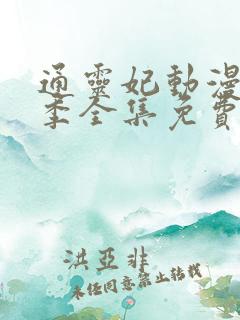 通靈妃動漫
季全集免費
洪亞非
未任同意禁止转载